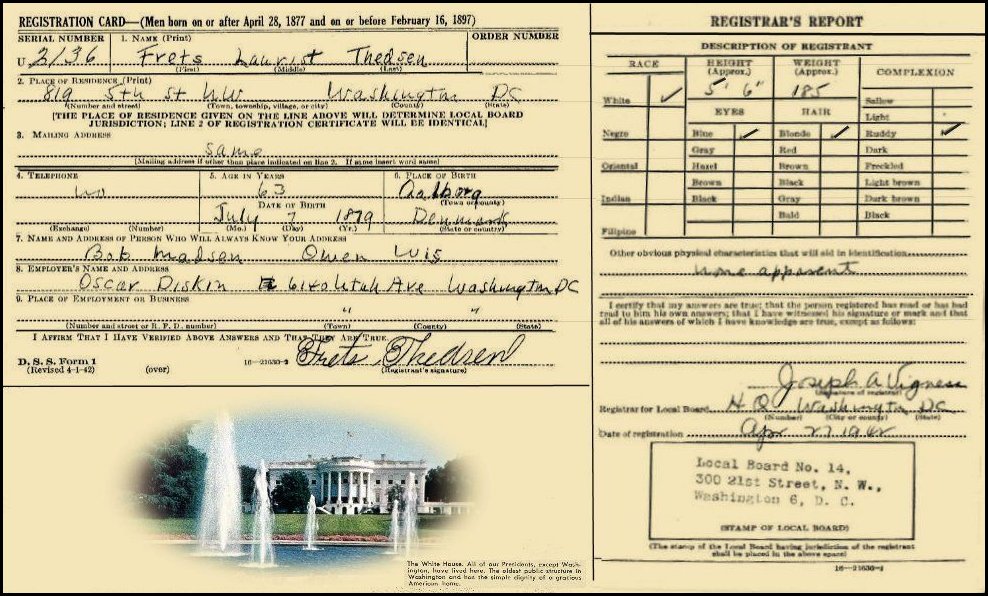 REGISTRATION CARD—(Men born on or after April 28, 1877 and on or before February 16, 1897)
SERIAL NUMBER
1. NAME (Print)
ORDER NUMBER
U 2136
Frets Laurist Thedsen
(First) (Middle) (Last)
2. PLACE OF RESIDENCE (Print)
819 5th St NW Washington DC
(Number and street) (Town, township, village, or city) (County) (State)
[THE PLACE OF RESIDENCE GIVEN ON THE LINE ABOVE WILL DETERMINE LOCAL BOARD
JURISDICTION; LINE 2 OF REGISTRATION CERTIFICATE WILL BE IDENTICAL]
3. MAILING ADDRESS
Same
[Mailing address if other than place indicated on line 2. If same insert word same]
4. TELEPHONE
5. AGE IN YEARS
6. PLACE OF BIRTH
63
Aalborg
(Town or county)
DATE OF BIRTH
July 7 1879
Denmark
(Exchange) (Number)
(Mo.) (Day) (Yr.)
(State or country)
7. NAME AND ADDRESS OF PERSON WHO WILL ALWAYS KNOW YOUR ADDRESS
Bob Madsen Owen Wis
8. EMPLOYER'S NAME AND ADDRESS
Oscar Diskin Utah Ave Washington DC
9. PLACE OF EMPLOYMENT OR BUSINESS
" "
(Number and street or R. F. D. number) (Town) (County) (State)
I AFFIRM THAT I HAVE VERIFIED ABOVE ANSWERS AND THAT THEY ARE TRUE.
D. S. S. Form 1
(Revised 4-1-42) (over)
16—21630-2
Frets Thedsen
(Registrant's signature)
The White House. All of our Presidents, except Wash-
ington, have lived here. The oldest public structure in
Washington and has the simple dignity of a gracious
American home.
REGISTRAR'S REPORT
DESCRIPTION OF REGISTRANT
RACE
HEIGHT
(Approx.)
WEIGHT
(Approx.)
COMPLEXION
5' 6"
185
White ✓
EYES
HAIR
Sallow
Light
Negro
Blue ✓
Blonde ✓
Ruddy ✓
Gray
Red
Dark
Oriental
Hazel
Brown
Freckled
Brown
Black
Light brown
Indian
Black
Gray
Dark brown
Bald
Black
Filipino
Other obvious physical characteristics that will aid in identification
none apparent
I certify that my answers are true; that the person registered has read or has had
read to him his own answers; that I have witnessed his signature or mark and that
all of his answers of which I have knowledge are true, except as follows:
Joseph A Vigness
(Signature of registrar)
Registrar for Local Board H Q Washington DC
(Number) (City or county) (State)
Date of registration Apr 27 1942
Local Board No. 14,
300 21st Street, N. W.,
Washington 6, D. C.
(STAMP OF LOCAL BOARD)
(The stamp of the Local Board having jurisdiction of the registrant
shall be placed in the above space)
16—21630-2